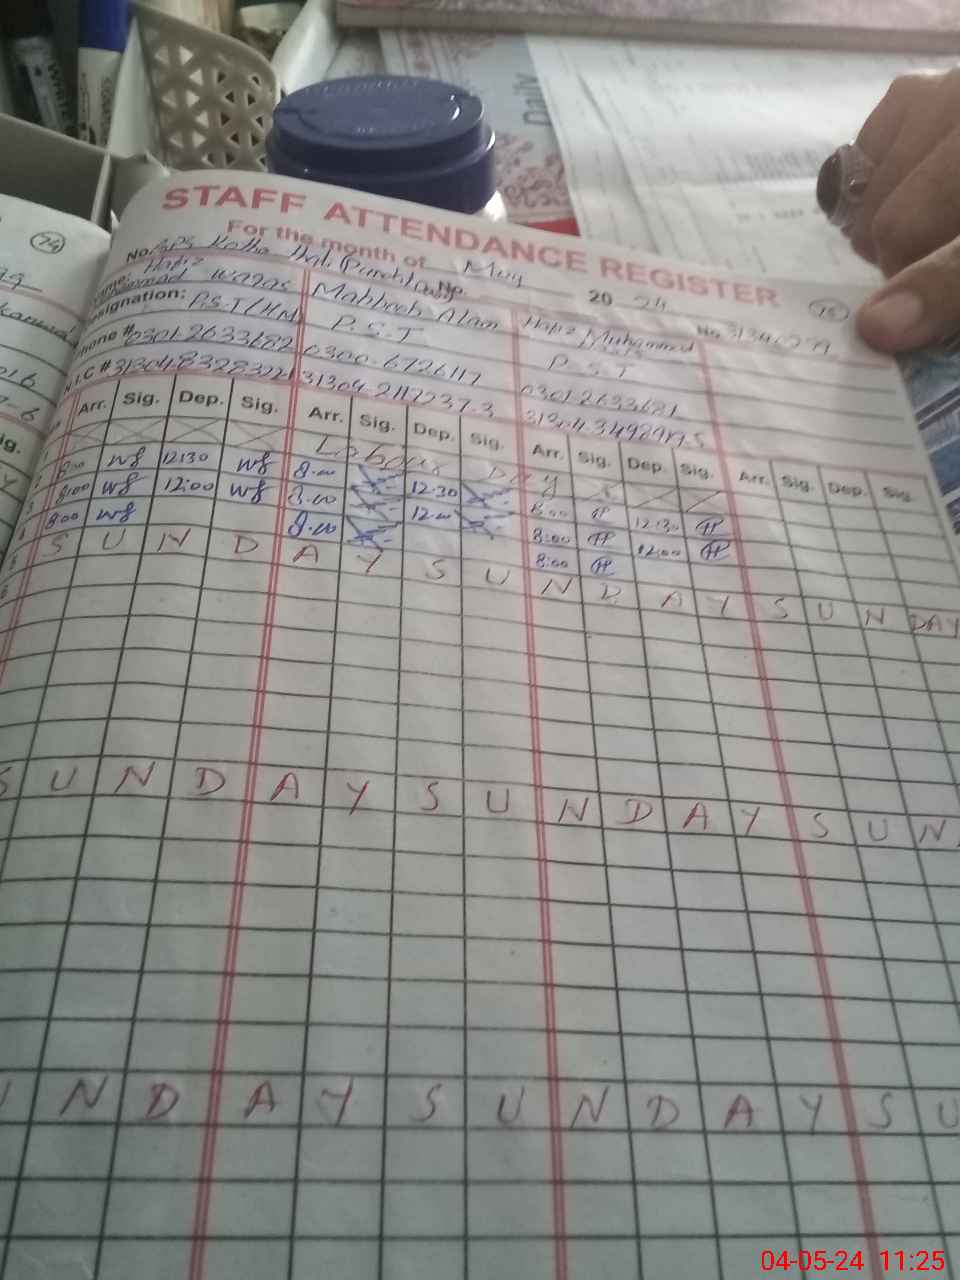 WRITE
Daily
STAFF ATTENDANCE REGISTER
For the month of May 2024
74
75
No. GPS Kotha Hal. No. No. 31340279
Name: Hafiz Mahboob Alam Hafiz Muhammad
Muhammad Waqas
Designation: P.S.T (HM) P.S.T P.S.T
Phone # 0301-2633682 0300-6726117 0301-2633681
N.I.C # 31304-8328322-1 31304-2117237-3 31304-3498949-5
Arr. Sig. Dep. Sig. Arr. Sig. Dep. Sig. Arr. Sig. Dep. Sig. Arr. Sig. Dep. Sig.
1 Labour Day
2 8:00 WS 12:30 WS 8:00 12:30 8:00 12:30
3 8:00 WS 12:00 WS 8:00 12:00 8:00 12:00
4 8:00 WS 8:00 8:00
5 S U N D A Y S U N D A Y S U N DAY
6
S U N D A Y S U N D A Y S U N
U N D A Y S U N D A Y S U
04-05-24 11:25